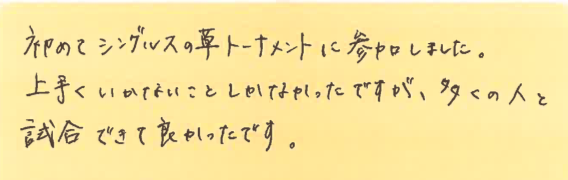 初めてシングルスの草トーナメントに参加しました。
上手くいかないことしかなかったですが、多くの人と
試合できて良かったです。